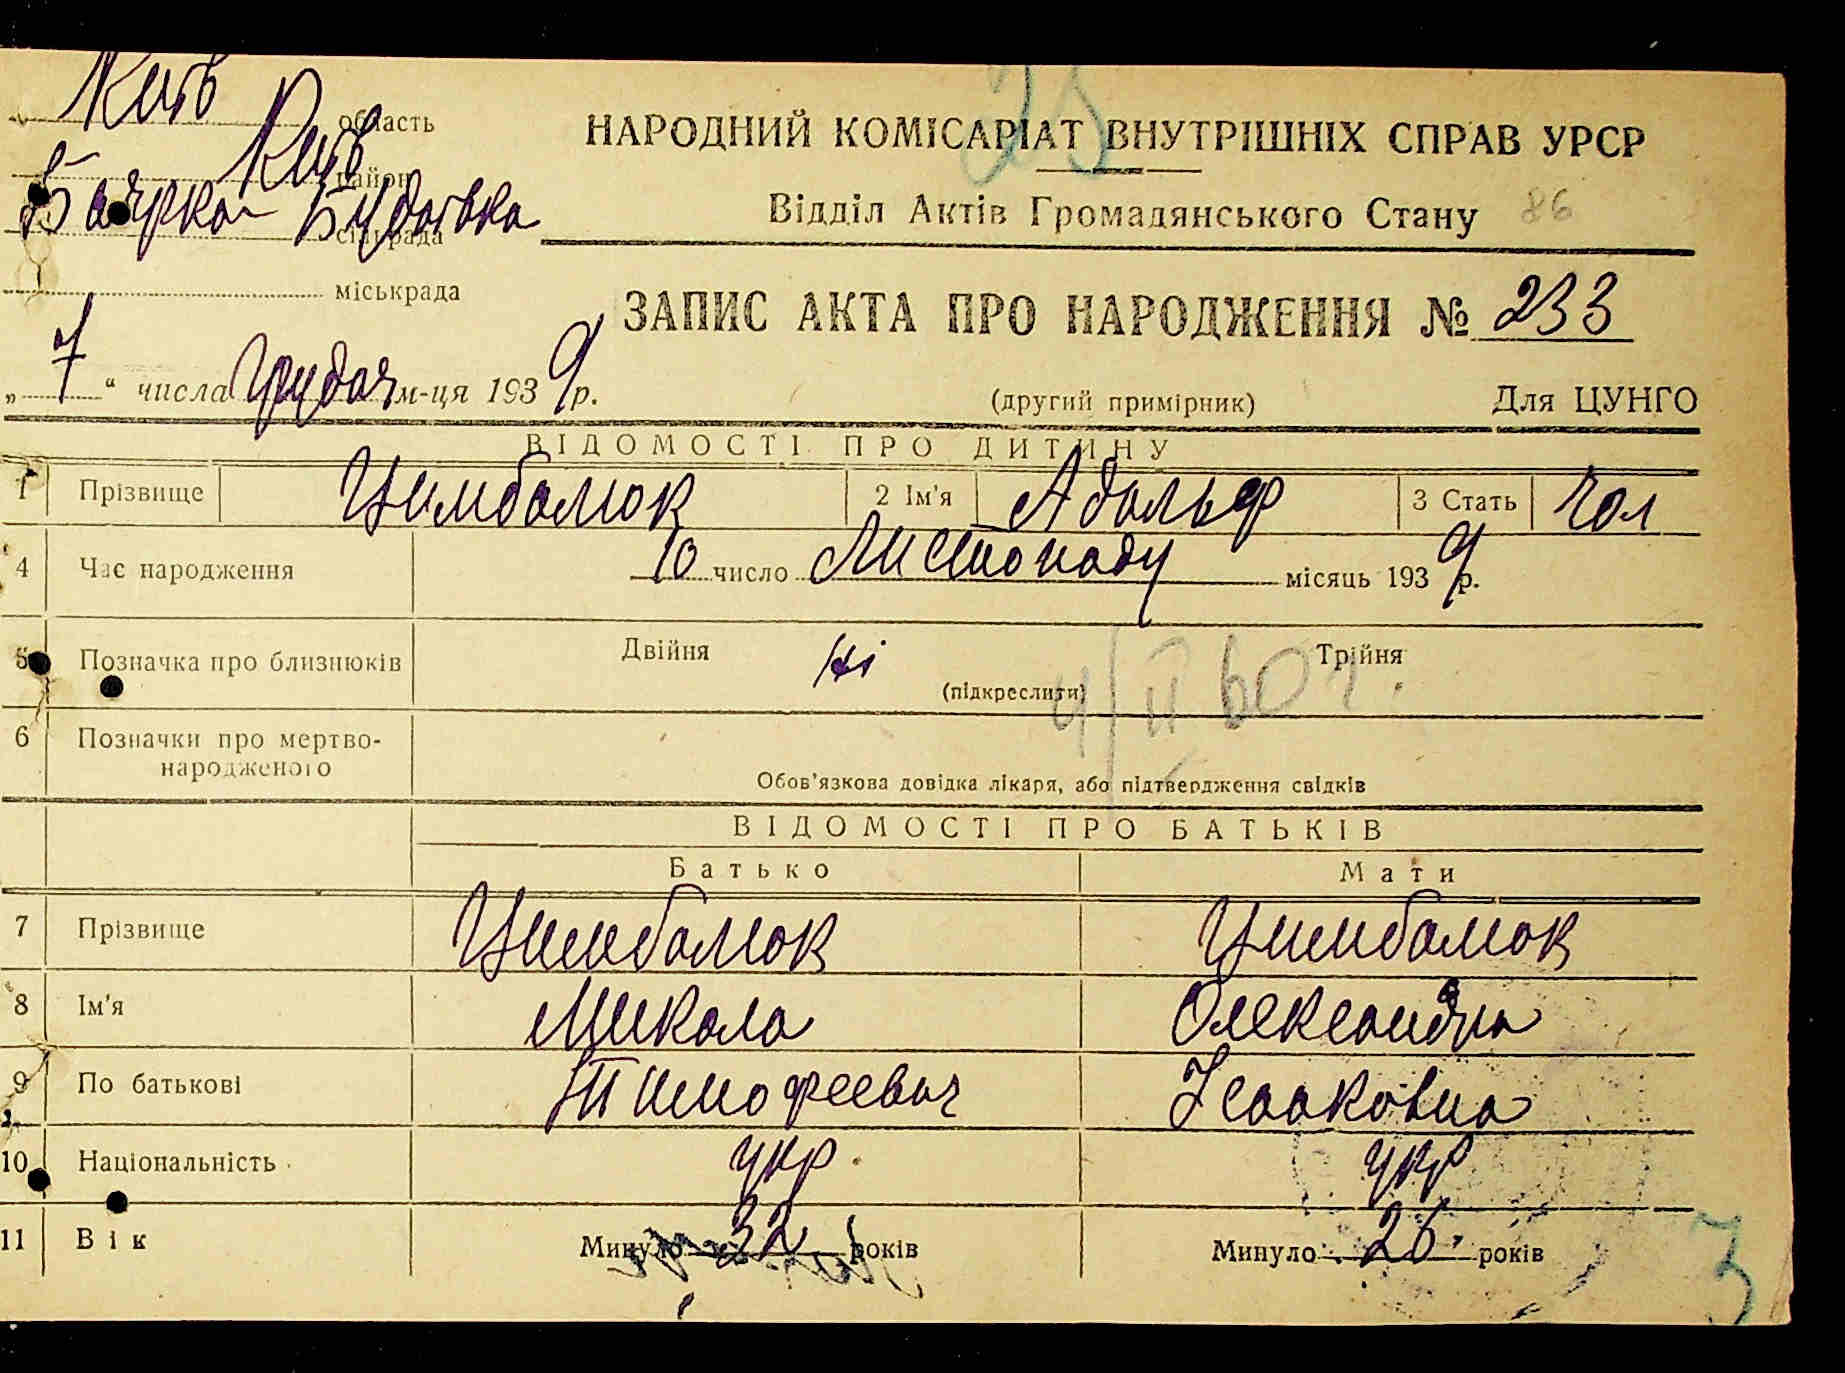 Київ область
Київ район
Боярка-Будаївка сільрада
міськрада
НАРОДНИЙ КОМІСАРІАТ ВНУТРІШНІХ СПРАВ УРСР
Відділ Актів Громадянського Стану 86
ЗАПИС АКТА ПРО НАРОДЖЕННЯ № 233
„7“ числа Грудня м-ця 1939 р.
(другий примірник) Для ЦУНГО
ВІДОМОСТІ ПРО ДИТИНУ
1 Прізвище Цимбалюк 2 Ім'я Адольф 3 Стать чол
4 Час народження 10 число Листопаду місяць 1939 р.
5 Позначка про близнюків Двійня ні Трійня
(підкреслити)
4/II 60 г.
6 Позначки про мертво-
народженого
Обов'язкова довідка лікаря, або підтвердження свідків
ВІДОМОСТІ ПРО БАТЬКІВ
Батько Мати
7 Прізвище Цимбалюк Цимбалюк
8 Ім'я Микола Олександра
9 По батькові Тимофеевич Ісааковна
10 Національність укр. укр
11 Вік Минуло 32 років Минуло 26 років